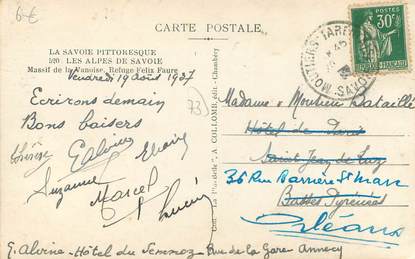 6€
CARTE POSTALE
LA SAVOIE PITTORESQUE
520 LES ALPES DE SAVOIE
Massif de la Vanoise. Refuge Félix Faure
Vendredi 19 août 1937
Ecrirons demain
Bons baisers
Thérèse
Suzanne
Marcel
Lucien
G. Alvine - Hôtel du Semnoz - Rue de la Gare Annecy
73
A. COLLOMB, édit. - Chambéry
30c
POSTES
MOUTIERS-TARENTAISE
SAVOIE
Madame & Monsieur Bataillé
Hôtel de Paris
Saint Jean de Luz
36 Rue Barrière St Marc
Basses Pyrénées
Orléans